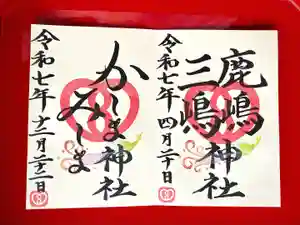 鹿嶋
三嶋神社
令和七年 四月二十日
かしま神社
みしま
令和七年 十二月二十二日